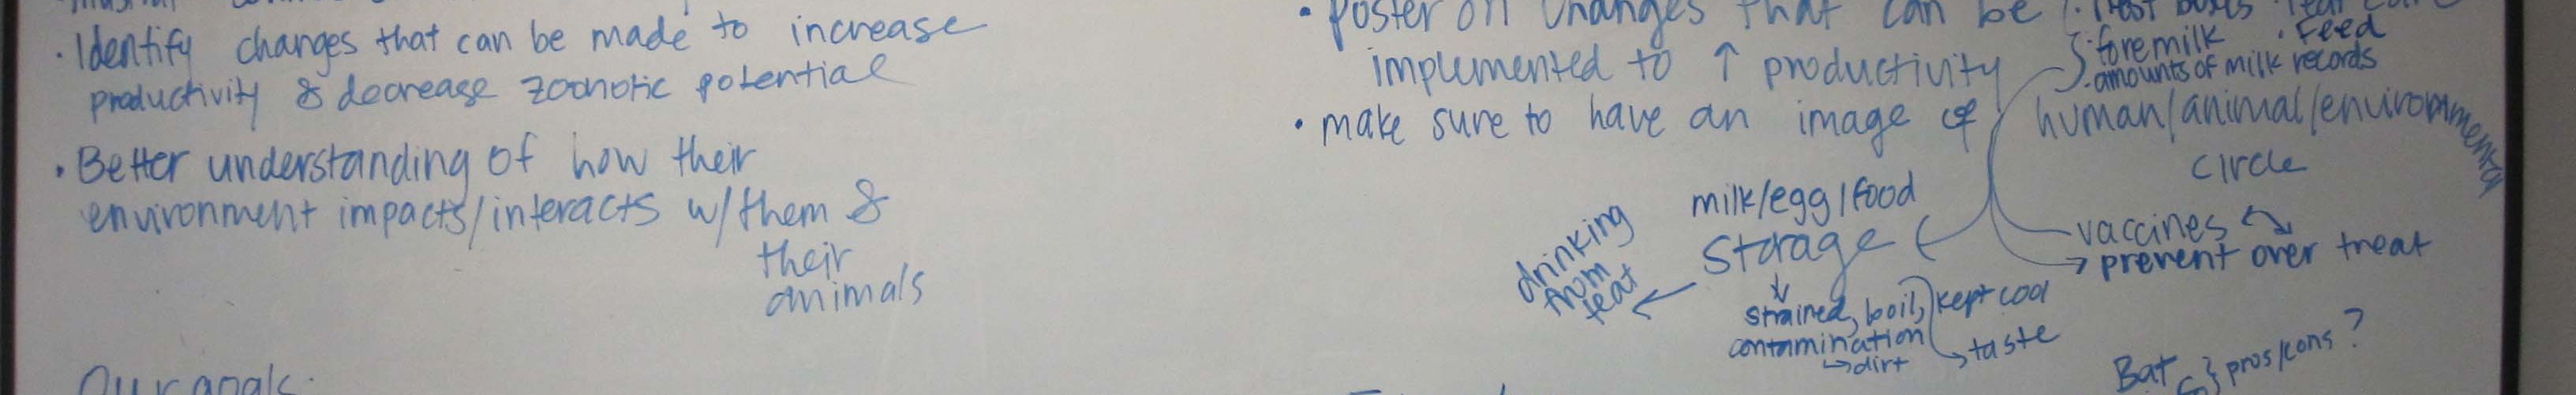 · Identify changes that can be made to increase
productivity & decrease zoonotic potential
· Better understanding of how their
environment impacts/interacts w/them &
their
animals
Our goals:
· Poster on changes that can be
implemented to ↑ productivity
· make sure to have an image of human/animal/environmental
circle
· foremilk · Feed
· amounts of milk records
milk/egg/food
storage
drinking
from
teat
strained, boil, kept cool
contamination
→dirt
→taste
vaccines
→ prevent over treat
Bat } pros/cons?